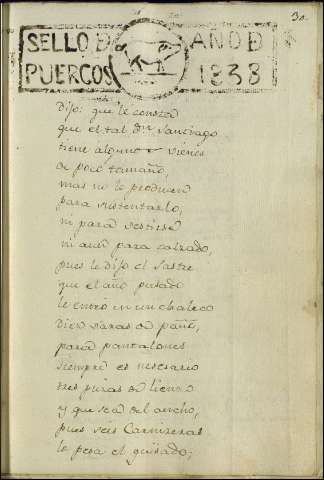 30.
SELLO D AÑO D
PUERCOS 1838
Dijo: que le consta
que el tal Dn. Santiago
tiene algunos vienes
de poco tamaño,
mas no le producen
para sustentarlo,
ni para vestirse
ni aun para calzado,
pues le dijo el Sastre
que el año pasado
le entró en un chaleco
diez varas de paño,
para pantalones
siempre es nesesario
tres piezas de lienzo
y que sea del ancho,
pues seis Carniseras
le pesa el guisado;